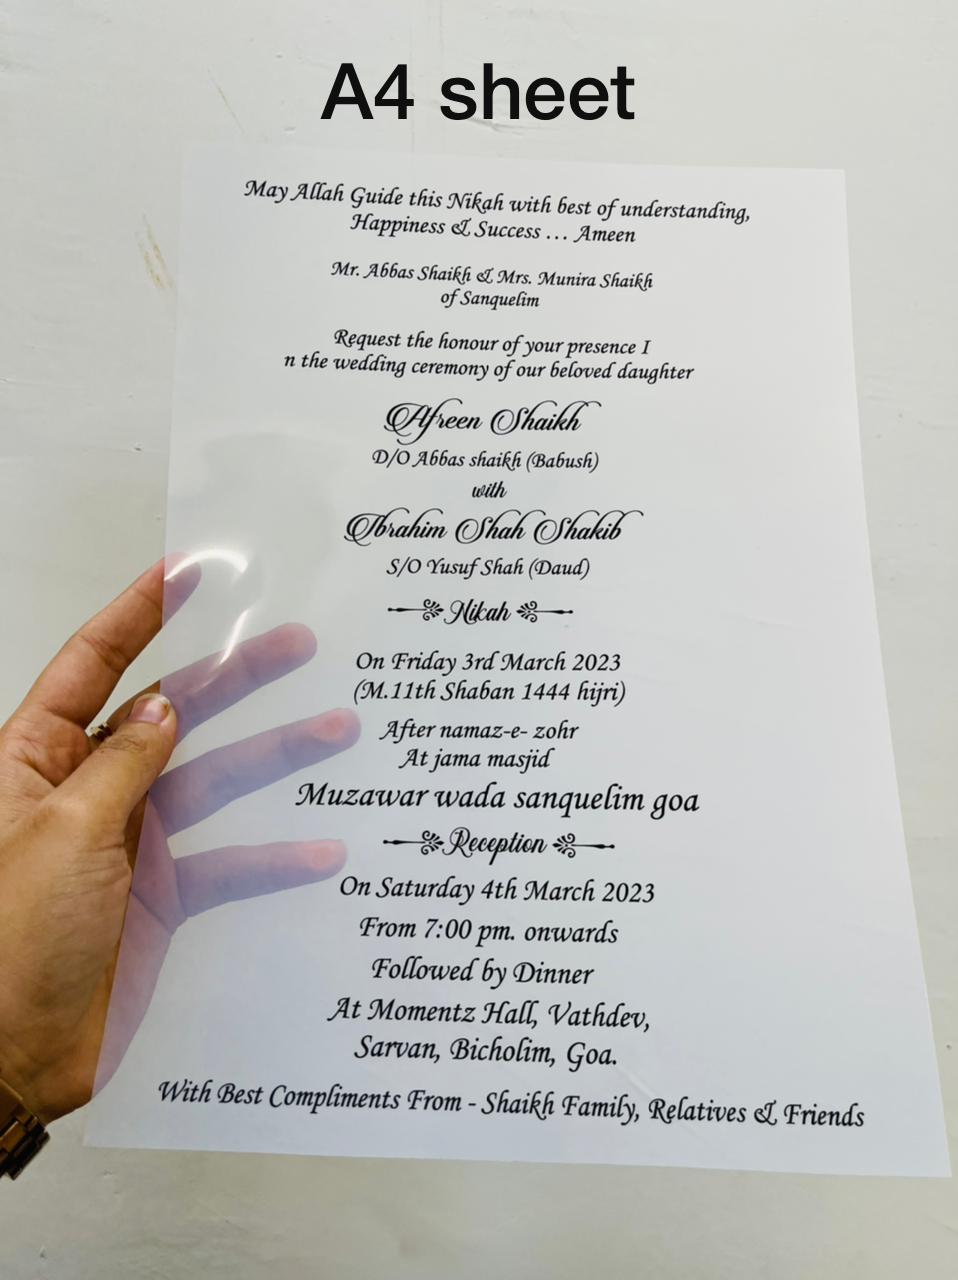 A4 sheet
May Allah Guide this Nikah with best of understanding,
Happiness & Success ... Ameen
Mr. Abbas Shaikh & Mrs. Munira Shaikh
of Sanquelim
Request the honour of your presence I
n the wedding ceremony of our beloved daughter
Afreen Shaikh
D/O Abbas shaikh (Babush)
with
Ibrahim Shah Shakib
S/O Yusuf Shah (Daud)
Nikah
On Friday 3rd March 2023
(M.11th Shaban 1444 hijri)
After namaz-e- zohr
At jama masjid
Muzawar wada sanquelim goa
Reception
On Saturday 4th March 2023
From 7:00 pm. onwards
Followed by Dinner
At Momentz Hall, Vathdev,
Sarvan, Bicholim, Goa.
With Best Compliments From - Shaikh Family, Relatives & Friends